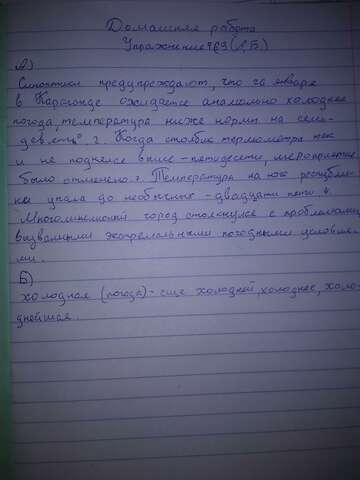 Домашняя работа
Упражнение №9 (А,Б)
А)
Синоптики предупреждают, что 20 января
в Караганде ожидается аномально холодная
погода, температура ниже нормы на семь-
десять° 2. Когда столбик термометра так
и не поднялся выше -пятидесяти, мероприятие
было отменено 3. Температура на юге республи-
ки упала до необычных -двадцати пяти 4.
Многомиллионный город столкнулся с проблемами,
вызванными экстремальными погодными условия-
ми.
Б)
холодная (погода)- еще холодней, холоднее, холо-
днейшая.